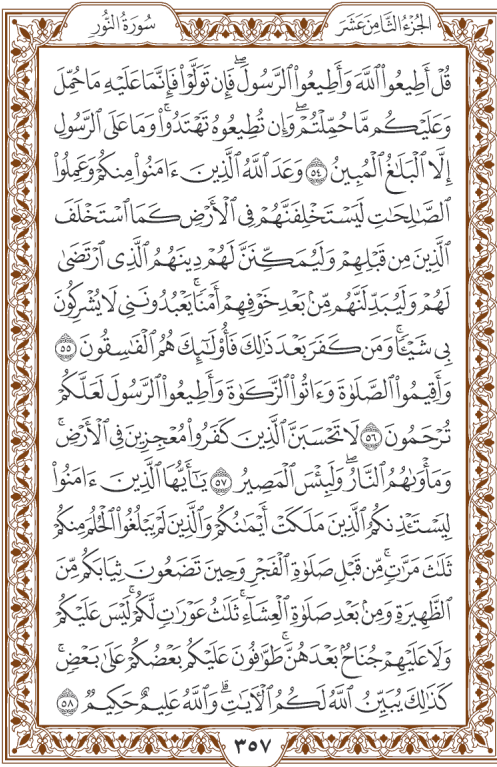 الجُزْءُ الثَّامِنَ عَشَرَ
سُورَةُ النُّور
قُلْ أَطِيعُوا۟ ٱللَّهَ وَأَطِيعُوا۟ ٱلرَّسُولَ ۖ فَإِن تَوَلَّوْا۟ فَإِنَّمَا عَلَيْهِ مَا حُمِّلَ
وَعَلَيْكُم مَّا حُمِّلْتُمْ ۖ وَإِن تُطِيعُوهُ تَهْتَدُوا۟ ۚ وَمَا عَلَى ٱلرَّسُولِ
إِلَّا ٱلْبَلَٰغُ ٱلْمُبِينُ ۝٥٤ وَعَدَ ٱللَّهُ ٱلَّذِينَ ءَامَنُوا۟ مِنكُمْ وَعَمِلُوا۟
ٱلصَّٰلِحَٰتِ لَيَسْتَخْلِفَنَّهُمْ فِى ٱلْأَرْضِ كَمَا ٱسْتَخْلَفَ
ٱلَّذِينَ مِن قَبْلِهِمْ وَلَيُمَكِّنَنَّ لَهُمْ دِينَهُمُ ٱلَّذِى ٱرْتَضَىٰ
لَهُمْ وَلَيُبَدِّلَنَّهُم مِّنۢ بَعْدِ خَوْفِهِمْ أَمْنًا ۚ يَعْبُدُونَنِى لَا يُشْرِكُونَ
بِى شَيْـًٔا ۚ وَمَن كَفَرَ بَعْدَ ذَٰلِكَ فَأُو۟لَٰٓئِكَ هُمُ ٱلْفَٰسِقُونَ ۝٥٥
وَأَقِيمُوا۟ ٱلصَّلَوٰةَ وَءَاتُوا۟ ٱلزَّكَوٰةَ وَأَطِيعُوا۟ ٱلرَّسُولَ لَعَلَّكُمْ
تُرْحَمُونَ ۝٥٦ لَا تَحْسَبَنَّ ٱلَّذِينَ كَفَرُوا۟ مُعْجِزِينَ فِى ٱلْأَرْضِ ۚ
وَمَأْوَىٰهُمُ ٱلنَّارُ ۖ وَلَبِئْسَ ٱلْمَصِيرُ ۝٥٧ يَٰٓأَيُّهَا ٱلَّذِينَ ءَامَنُوا۟
لِيَسْتَـْٔذِنكُمُ ٱلَّذِينَ مَلَكَتْ أَيْمَٰنُكُمْ وَٱلَّذِينَ لَمْ يَبْلُغُوا۟ ٱلْحُلُمَ مِنكُمْ
ثَلَٰثَ مَرَّٰتٍ ۚ مِّن قَبْلِ صَلَوٰةِ ٱلْفَجْرِ وَحِينَ تَضَعُونَ ثِيَابَكُم مِّنَ
ٱلظَّهِيرَةِ وَمِنۢ بَعْدِ صَلَوٰةِ ٱلْعِشَآءِ ۚ ثَلَٰثُ عَوْرَٰتٍ لَّكُمْ ۚ لَيْسَ عَلَيْكُمْ
وَلَا عَلَيْهِمْ جُنَاحٌۢ بَعْدَهُنَّ ۚ طَوَّٰفُونَ عَلَيْكُم بَعْضُكُمْ عَلَىٰ بَعْضٍ ۚ
كَذَٰلِكَ يُبَيِّنُ ٱللَّهُ لَكُمُ ٱلْءَايَٰتِ ۗ وَٱللَّهُ عَلِيمٌ حَكِيمٌ ۝٥٨
٣٥٧